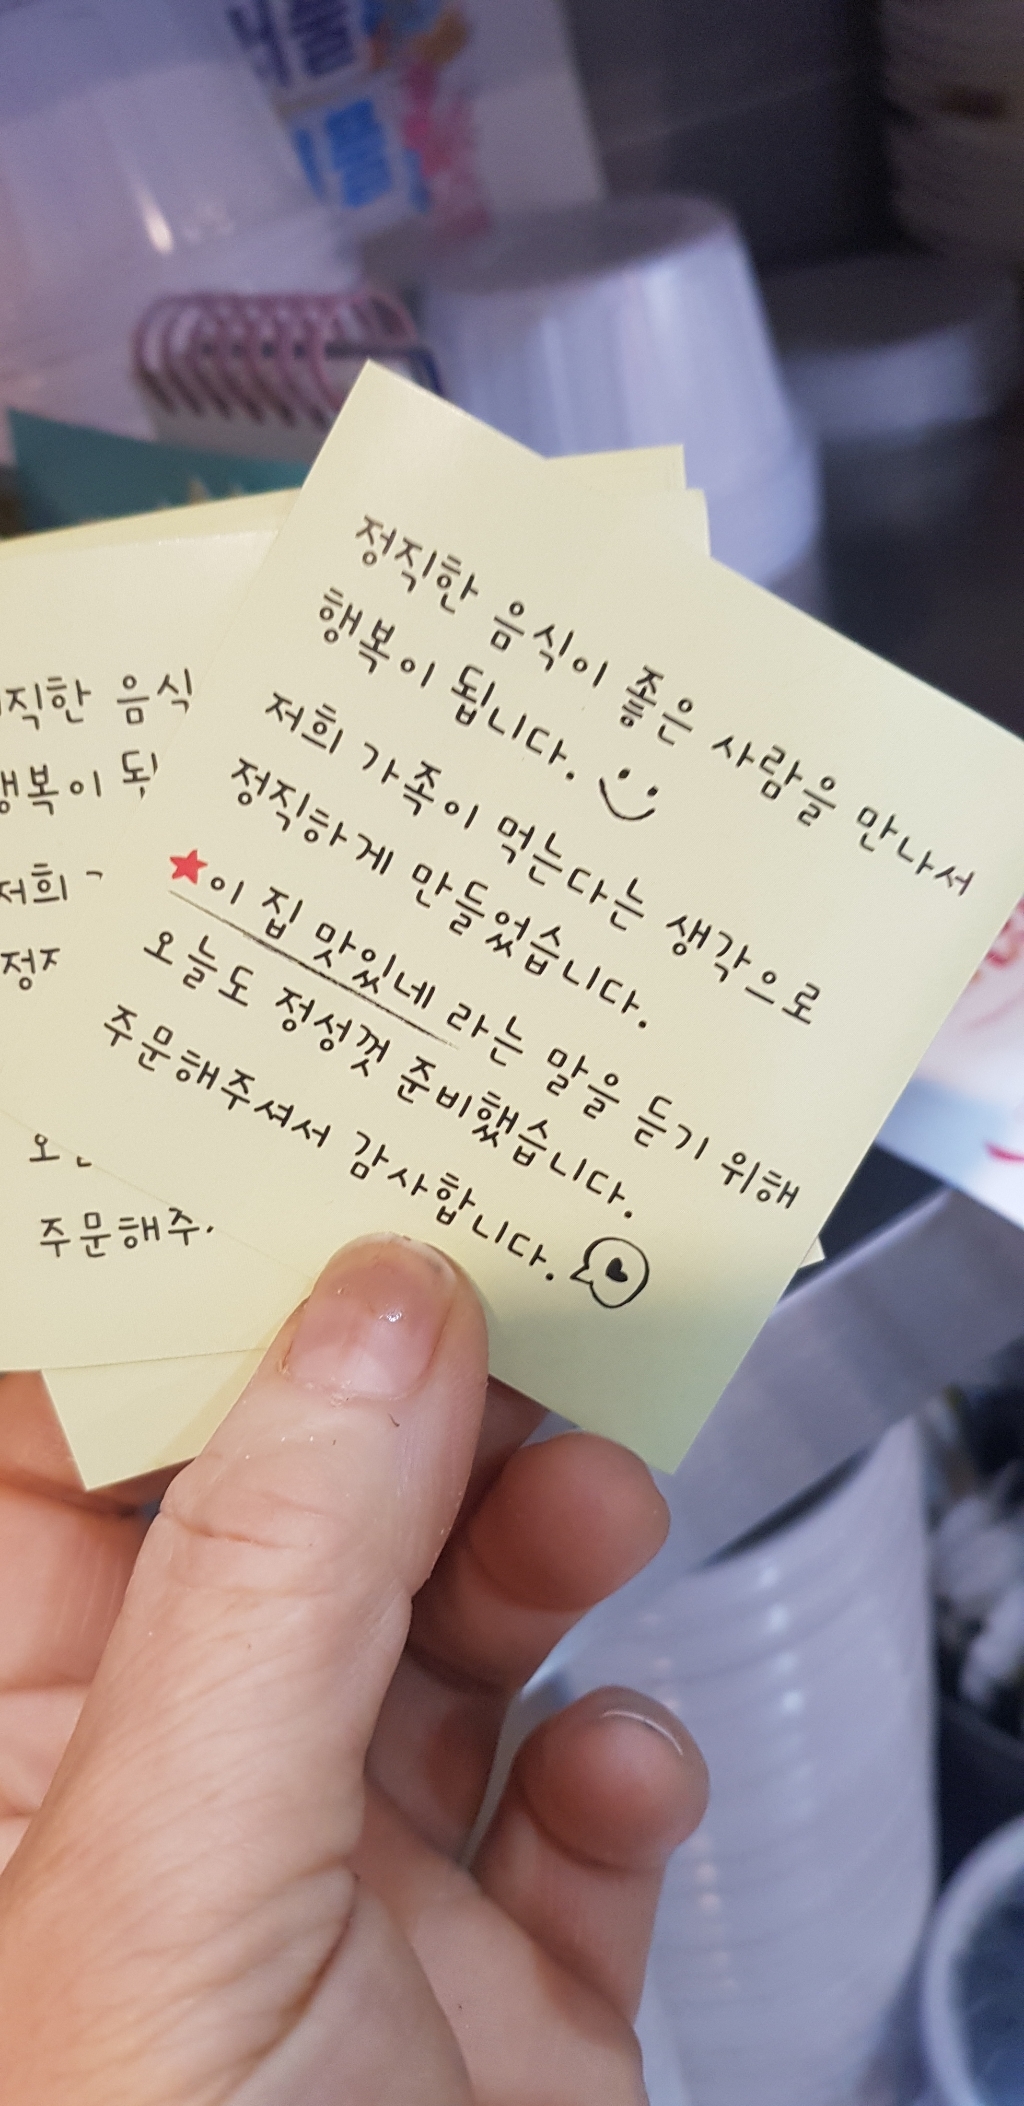 정직한 음식이 좋은 사람을 만나서
행복이 됩니다.
저희 가족이 먹는다는 생각으로
정직하게 만들었습니다.
★이 집 맛있네 라는 말을 듣기 위해
오늘도 정성껏 준비했습니다.
주문해주셔서 감사합니다.
직한 음식
행복이
저희
주문해주